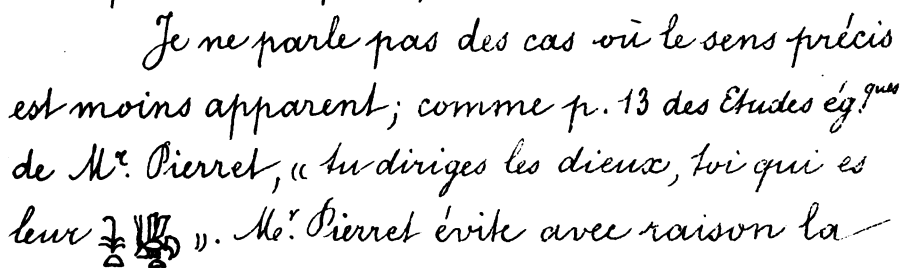 Je ne parle pas des cas où le sens précis
est moins apparent; comme p. 13 des Etudes ég.ques
de Mr. Pierret, « tu diriges les dieux, toi qui es
leur ». Mr. Pierret évite avec raison la